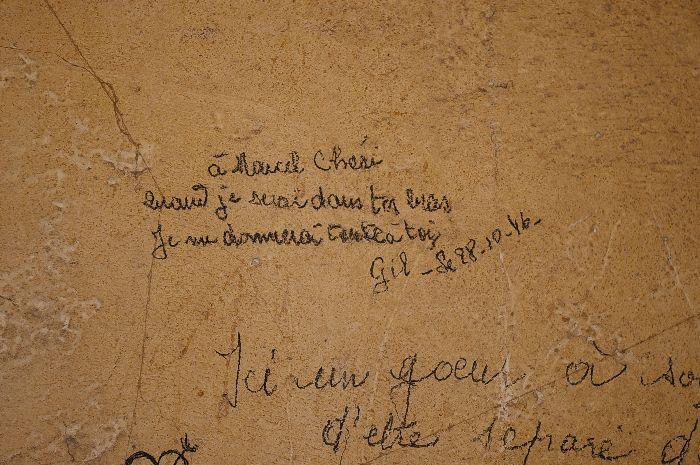 à Marcel Chéri
quand je serai dans tes bras
Je me donnerai toute à toi
Gil - le 28-10-46-
Ici un coeur a so
d'etre separé d'